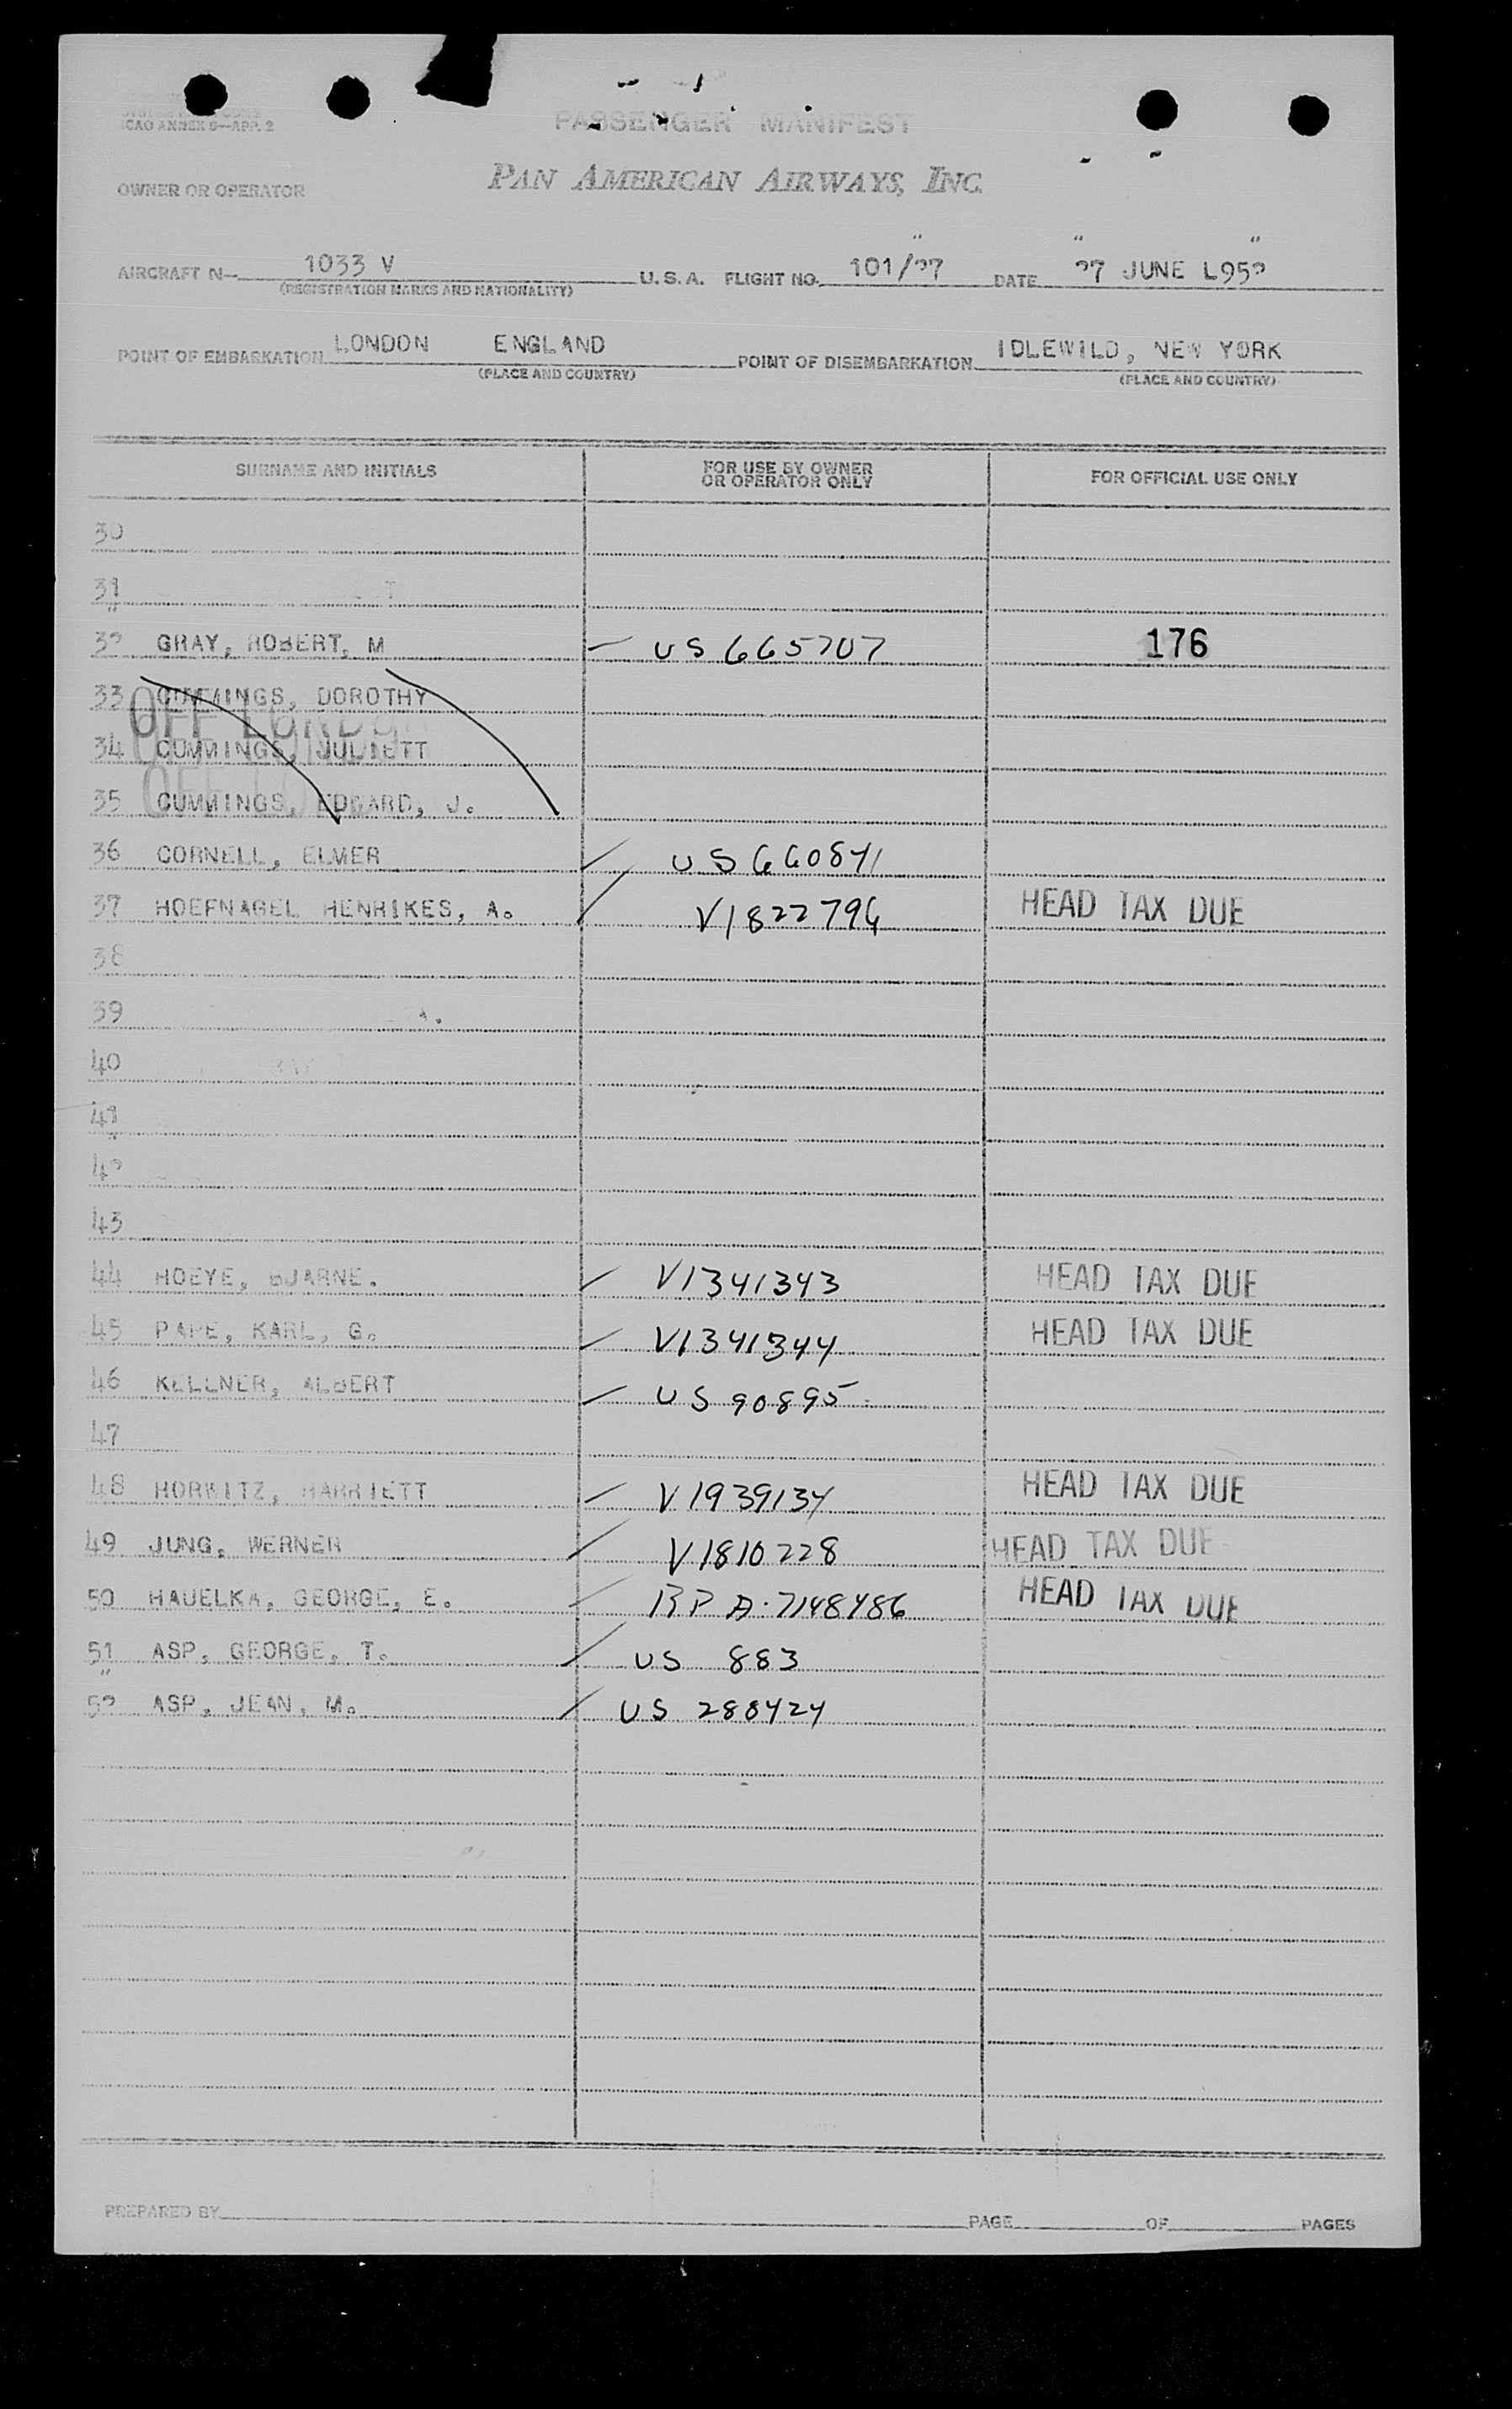 ICAO ANNEX 9—APP. 2
PASSENGER MANIFEST
OWNER OR OPERATOR PAN AMERICAN AIRWAYS, INC.
AIRCRAFT N- 1033 V U.S.A. FLIGHT NO. 101/27 DATE 27 JUNE L952
(REGISTRATION MARKS AND NATIONALITY)
POINT OF EMBARKATION LONDON ENGLAND POINT OF DISEMBARKATION IDLEWILD, NEW YORK
(PLACE AND COUNTRY) (PLACE AND COUNTRY)
SURNAME AND INITIALS FOR USE BY OWNER OR OPERATOR ONLY FOR OFFICIAL USE ONLY
30
31
32 GRAY, ROBERT, M US 665707 176
33 CUMMINGS, DOROTHY
OFF LONDON
34 CUMMINGS, JULIETT
35 CUMMINGS, EDGARD, J.
36 CORNELL, ELMER US 660841
37 HOEFNAGEL HENRIKES, A. V1822796 HEAD TAX DUE
38
39
40
41
42
43
44 HOEYE, BJARNE. V1341343 HEAD TAX DUE
45 PAPE, KARL, G. V1341344 HEAD TAX DUE
46 KELLNER, ALBERT US 90895
47
48 HORWITZ, HARRIETT V1939134 HEAD TAX DUE
49 JUNG, WERNER V1810228 HEAD TAX DUE
50 HAUELKA, GEORGE, E. RP A-7148486 HEAD TAX DUE
51 ASP, GEORGE, T. US 883
52 ASP, JEAN, M. US 288424
PREPARED BY PAGE OF PAGES